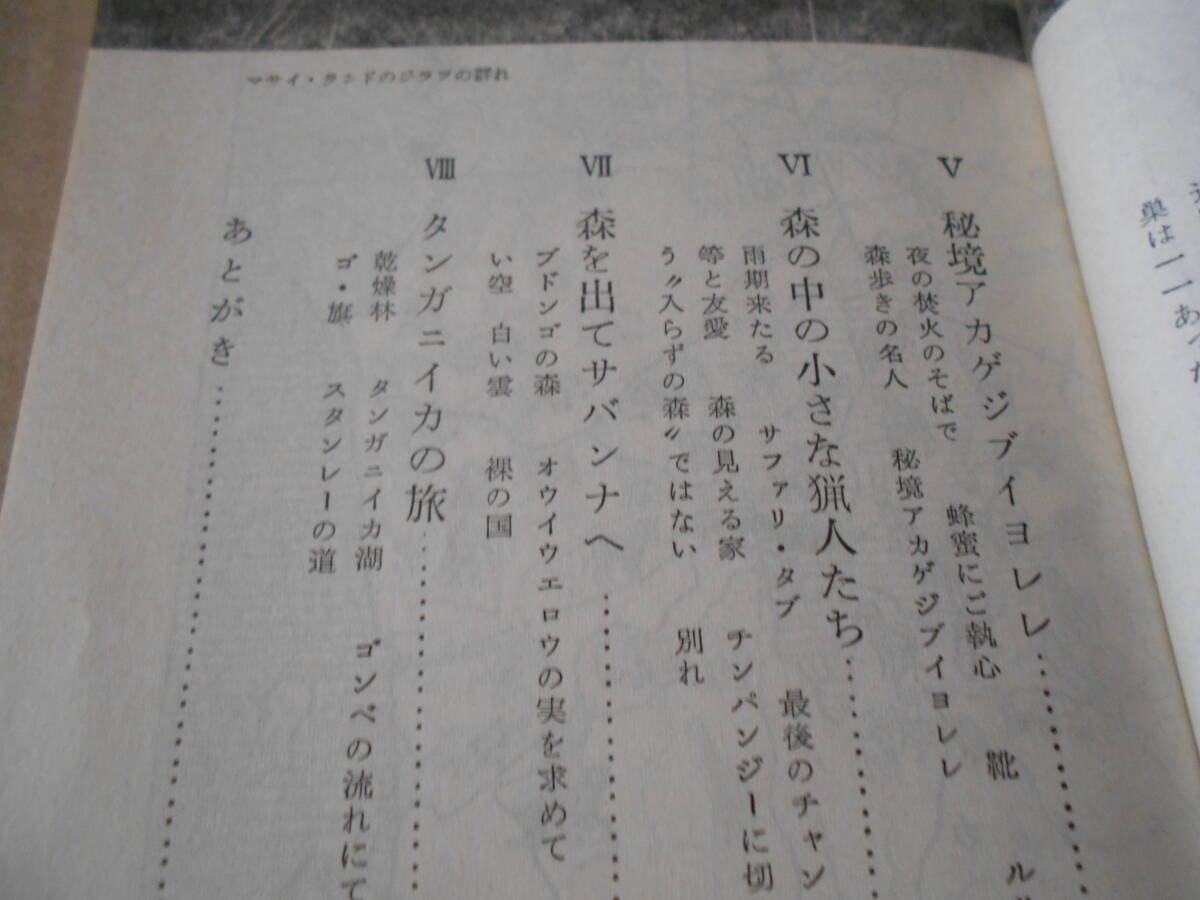 マサイ・ランドのジラフの群れ
Ⅴ 秘境アカゲジブイヨレレ……
夜の焚火のそばで 蜂蜜にご執心 靴
森歩きの名人 秘境アカゲジブイヨレレ
Ⅵ 森の中の小さな猟人たち……
雨期来たる サファリ・タブ 最後のチャン
等と友愛 森の見える家 チンパンジーに切
う〝入らずの森〟ではない 別れ
Ⅶ 森を出てサバンナへ……
ブドンゴの森 オウイウエロウの実を求めて
い空 白い雲 裸の国
Ⅷ タンガニイカの旅……
乾燥林 タンガニイカ湖 ゴンベの流れにて
ゴ・旗 スタンレーの道
あとがき……